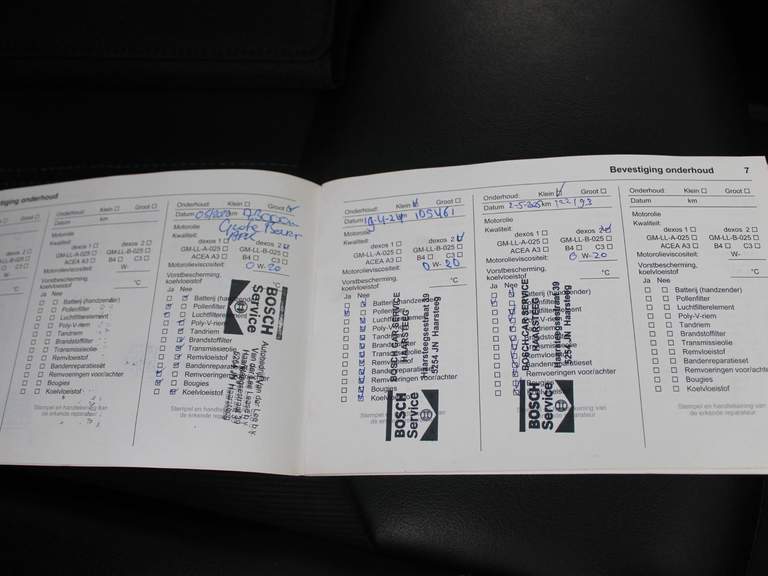 stiging onderhoud
Groot
dexos 2
GM-LL-B-025
C3
W-
°C
Onderhoud: Klein Groot
Datum km
Motorolie
Kwaliteit:
dexos 1 dexos 2
GM-LL-A-025 GM-LL-B-025
ACEA A3 B4 C3
Motorolieviscositeit: W-
Vorstbescherming,
koelvloeistof °C
Ja Nee
Batterij (handzender)
Pollenfilter
Luchtfilterelement
Poly-V-riem
Tandriem
Brandstoffilter
Transmissieolie
Remvloeistof
Bandenreparatieset
Remvoeringen voor/achter
Bougies
Koelvloeistof
Stempel en handtekening van
de erkende reparateur
Onderhoud: Klein Groot
Datum km
Motorolie
Grote Beurt
Kwaliteit:
dexos 1 dexos 2
GM-LL-A-025 GM-LL-B-025
ACEA A3 B4 C3
Motorolieviscositeit: 0 W-20
Vorstbescherming,
koelvloeistof
Ja Nee
Batterij (handzender)
Pollenfilter
Luchtfilterelement
Poly-V-riem
Tandriem
Brandstoffilter
Transmissieolie
Remvloeistof
Bandenreparatieset
Remvoeringen
Bougies
Koelvloeistof
Stempel en
de erkende
BOSCH
Service
Bevestiging onderhoud 7
Onderhoud: Klein Groot
Datum 19-4-24 km 105461
Motorolie
Kwaliteit:
dexos 1 dexos 2
GM-LL-A-025 GM-LL-B-025
ACEA A3 B4 C3
Motorolieviscositeit: 0 W-20
Vorstbescherming,
koelvloeistof °C
Ja Nee
Batterij (handzender)
Pollenfilter
Luchtfilterelement
Poly-V-riem
Tandriem
Brandstoffilter
Transmissie
Remvloeistof
Bandenrepa
Remvoering voor/achter
Bougies
Koelv
BOSCH CAR SERVICE
HAARSTEEG
Haarsteegsestraat 39
5254 JN Haarsteeg
BOSCH
Service
Onderhoud: Klein Groot
Datum 2-5-2025 km 122193
Motorolie
Kwaliteit:
dexos 1 dexos 2
GM-LL-A-025 GM-LL-B-025
ACEA A3 B4 C3
Motorolieviscositeit: 0 W-20
Vorstbescherming,
koelvloeistof °C
Ja Nee
BOSCH CAR SERVICE
HAARSTEEG
Haarsteegsestraat 39
5254 JN Haarsteeg
BOSCH
Service
Onderhoud: Klein Groot
Datum km
Motorolie
Kwaliteit:
dexos 1 dexos 2
GM-LL-A-025 GM-LL-B-025
ACEA A3 B4 C3
Motorolieviscositeit: W-
Vorstbescherming,
koelvloeistof °C
Ja Nee
Batterij (handzender)
Pollenfilter
Luchtfilterelement
Poly-V-riem
Tandriem
Brandstoffilter
Transmissieolie
Remvloeistof
Bandenreparatieset
Remvoeringen voor/achter
Bougies
Koelvloeistof
Stempel en handtekening van
de erkende reparateur